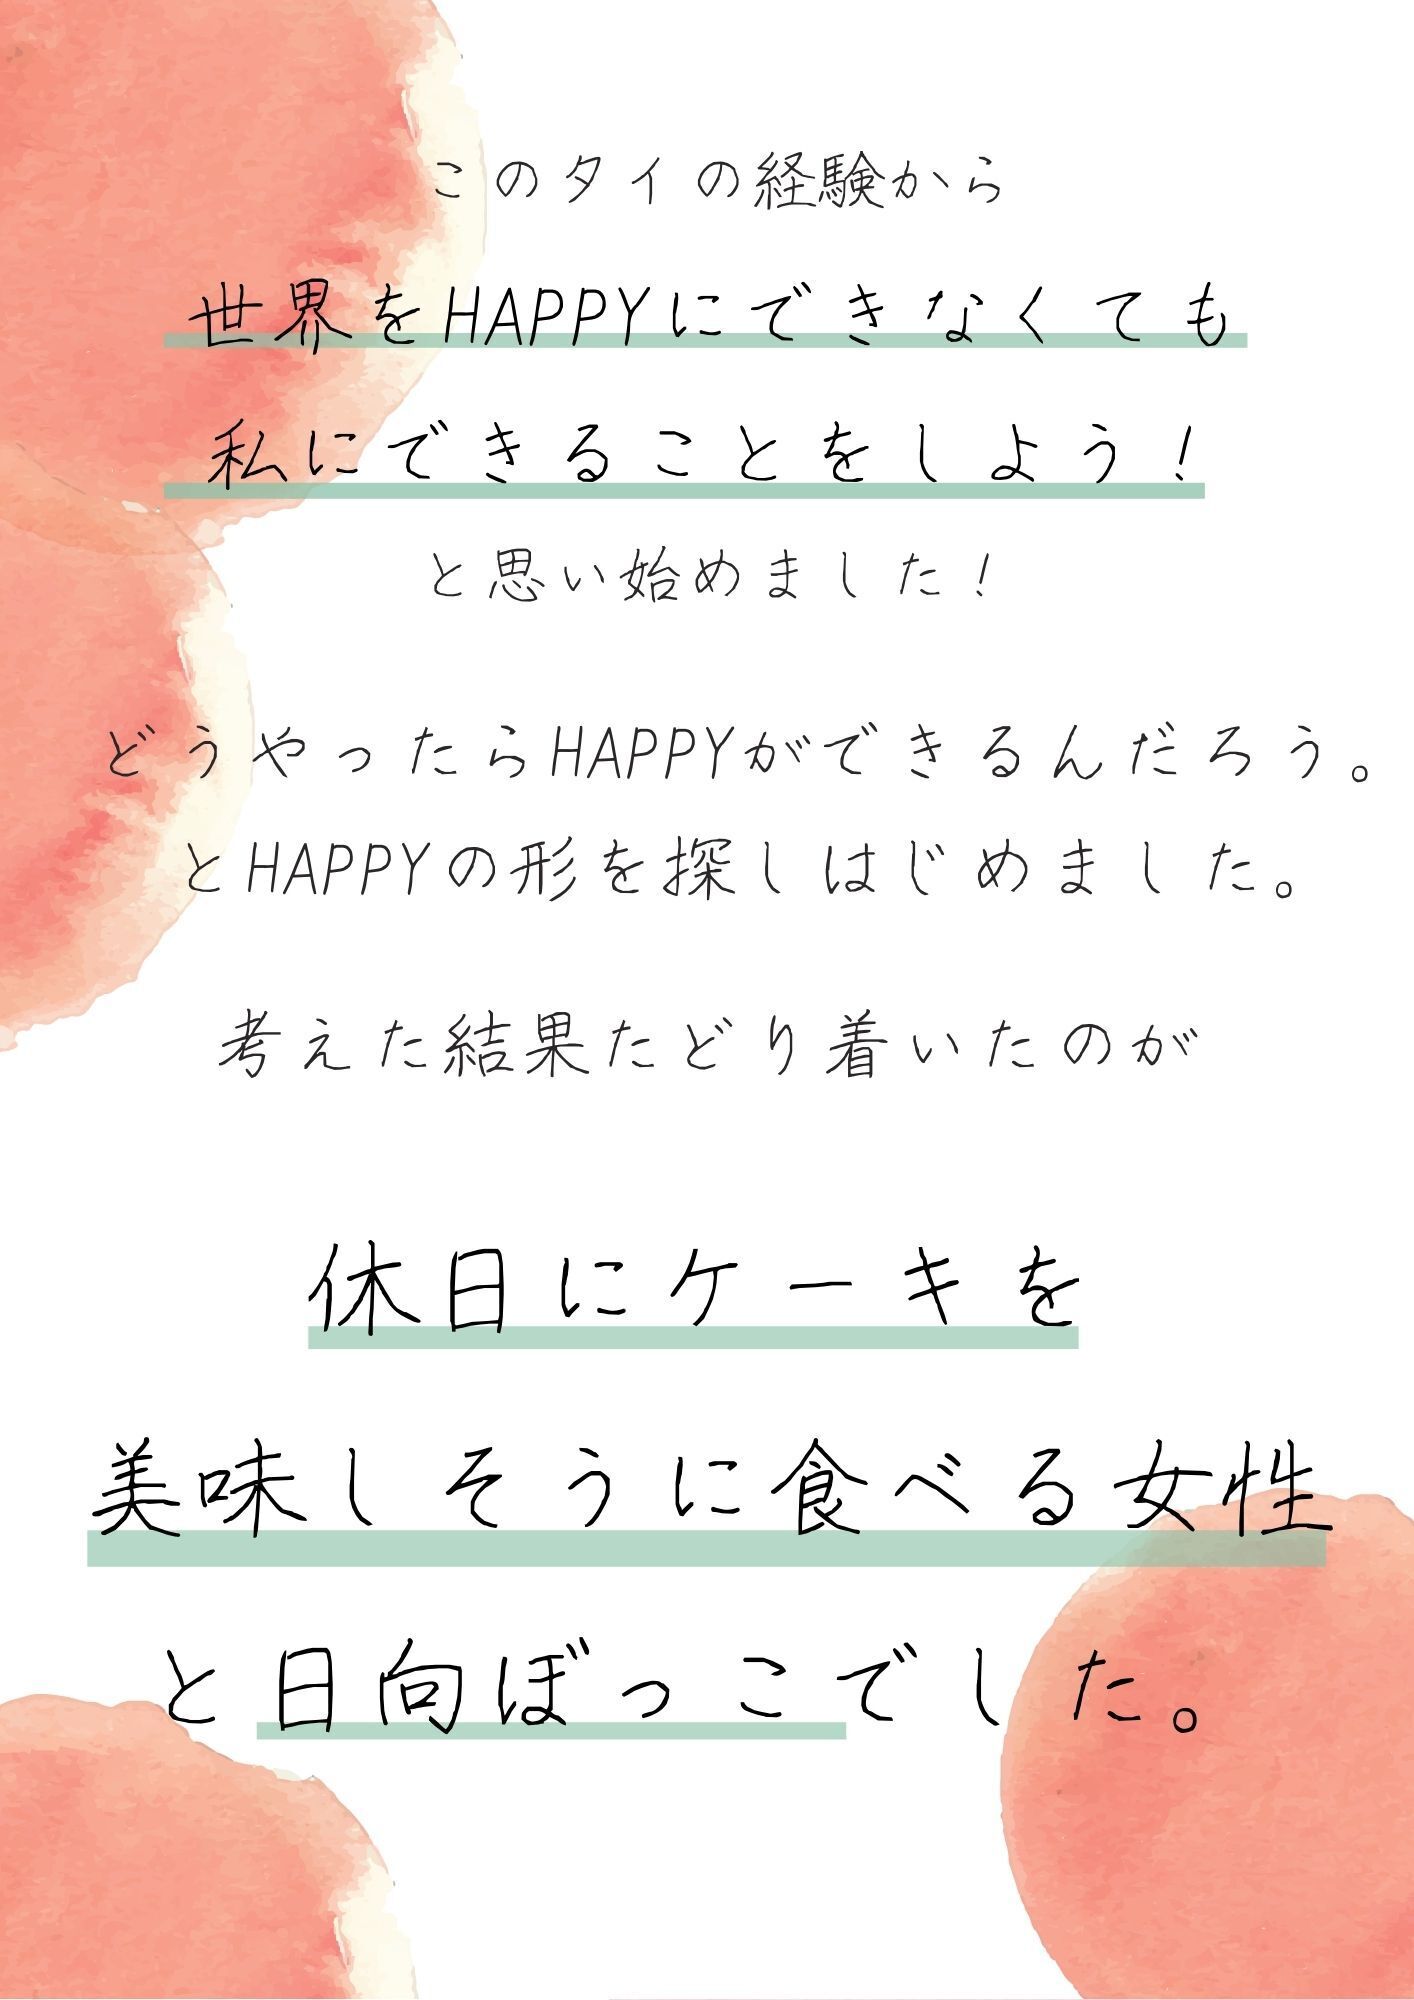 このタイの経験から
世界をHAPPYにできなくても
私にできることをしよう!
と思い始めました!
どうやったらHAPPYができるんだろう。
とHAPPYの形を探しはじめました。
考えた結果たどり着いたのが
休日にケーキを
美味しそうに食べる女性
と日向ぼっこでした。